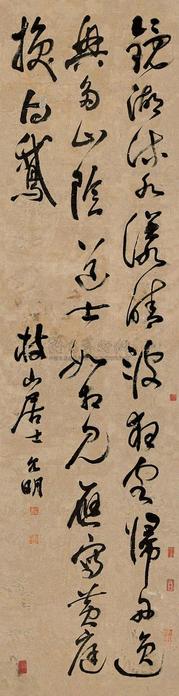 鏡湖流水漾晴波狂客歸舟逸
興多山陰道士如相見應寫黃庭
換白鵝
枝山居士允明